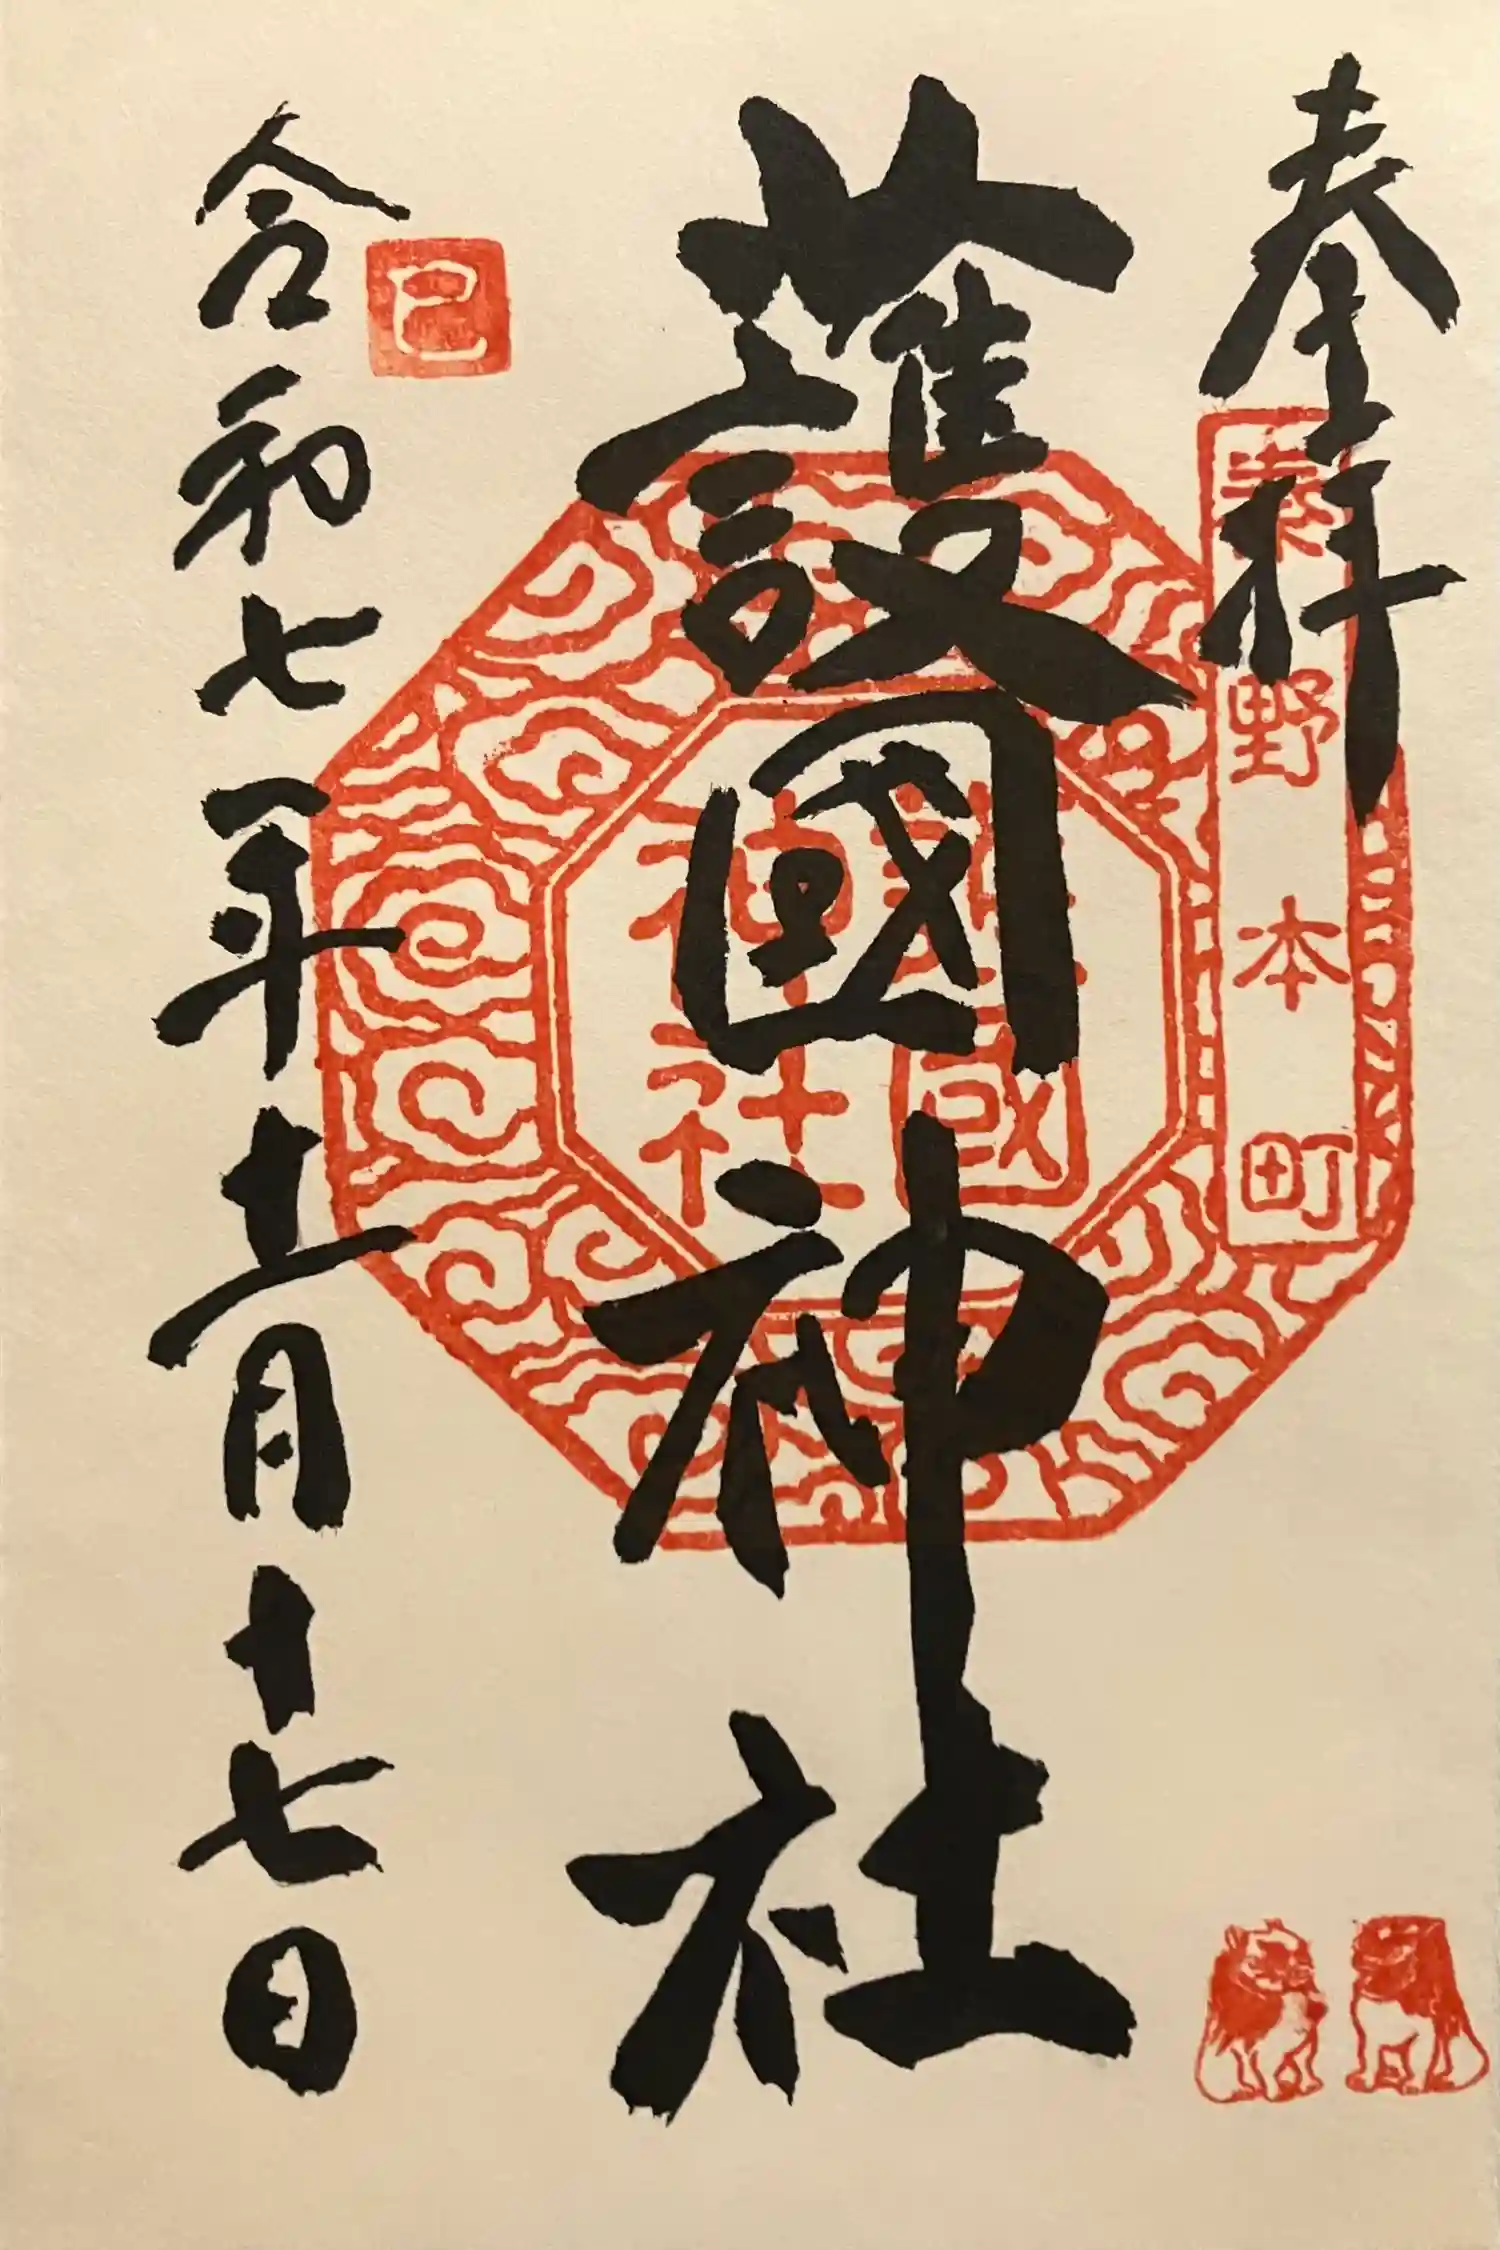 奉拝
秦野本町
護國神社
護國神社
巳
令和七年十二月十七日